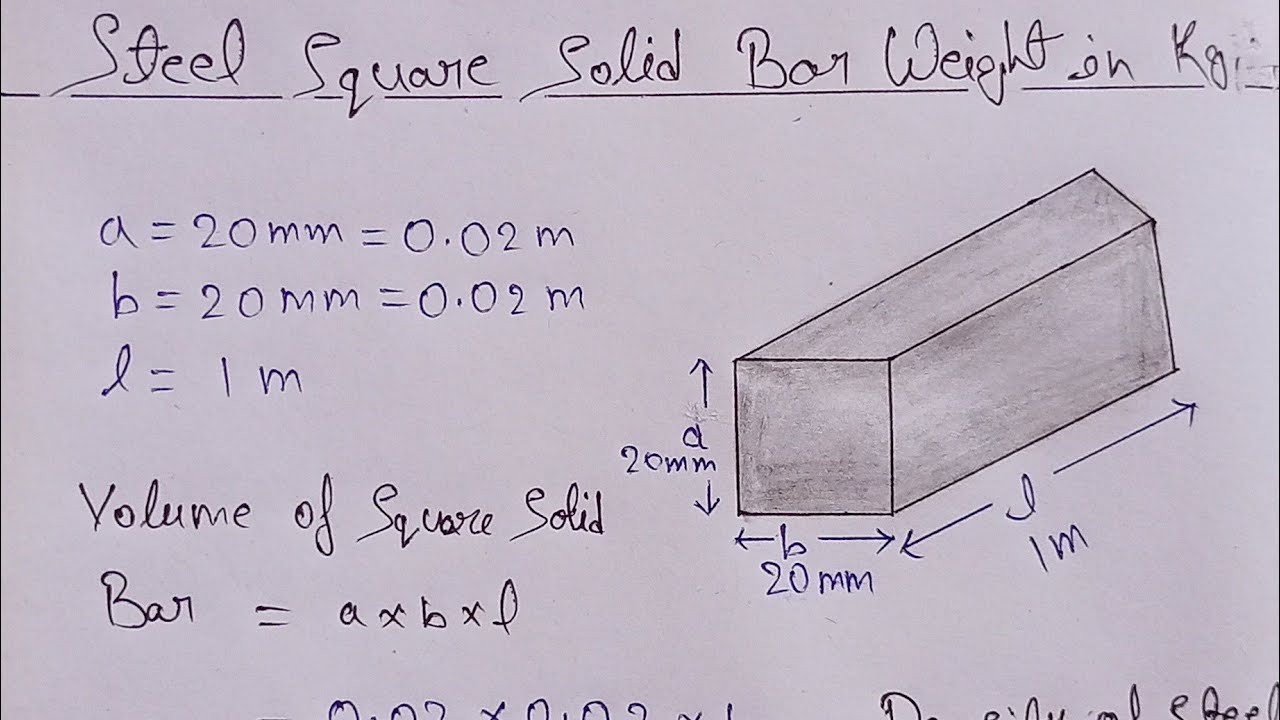 Steel Square Solid Bar Weight in Kg:-
a = 20mm = 0.02 m
b = 20mm = 0.02 m
l = 1 m
a
20mm
b
20mm
l
1m
Volume of Square Solid
Bar = a×b×l
= 0.02 × 0.02 × 1
Density of steel